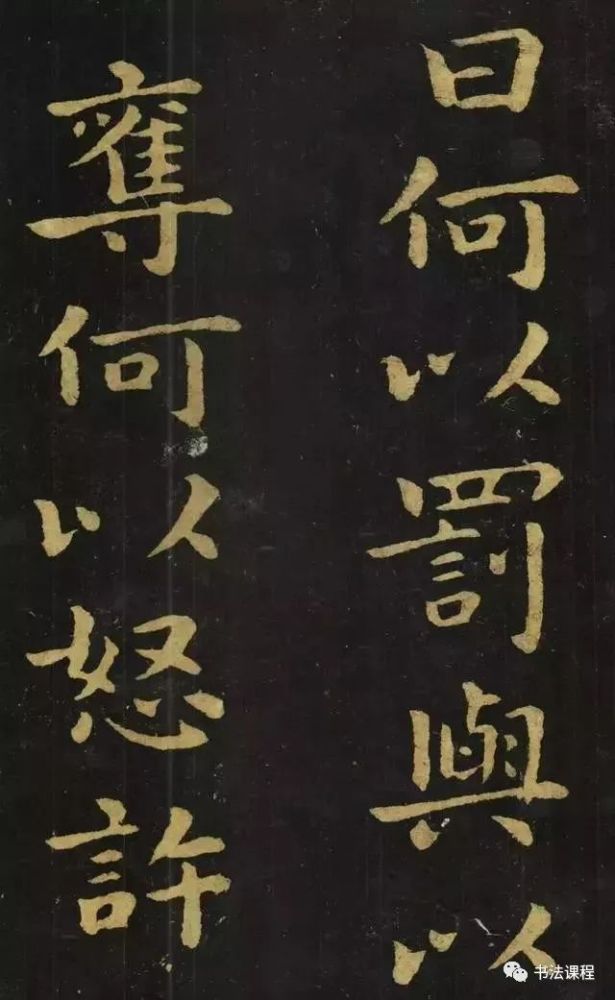 曰何以罰與以
奪何以怒許
书法课程